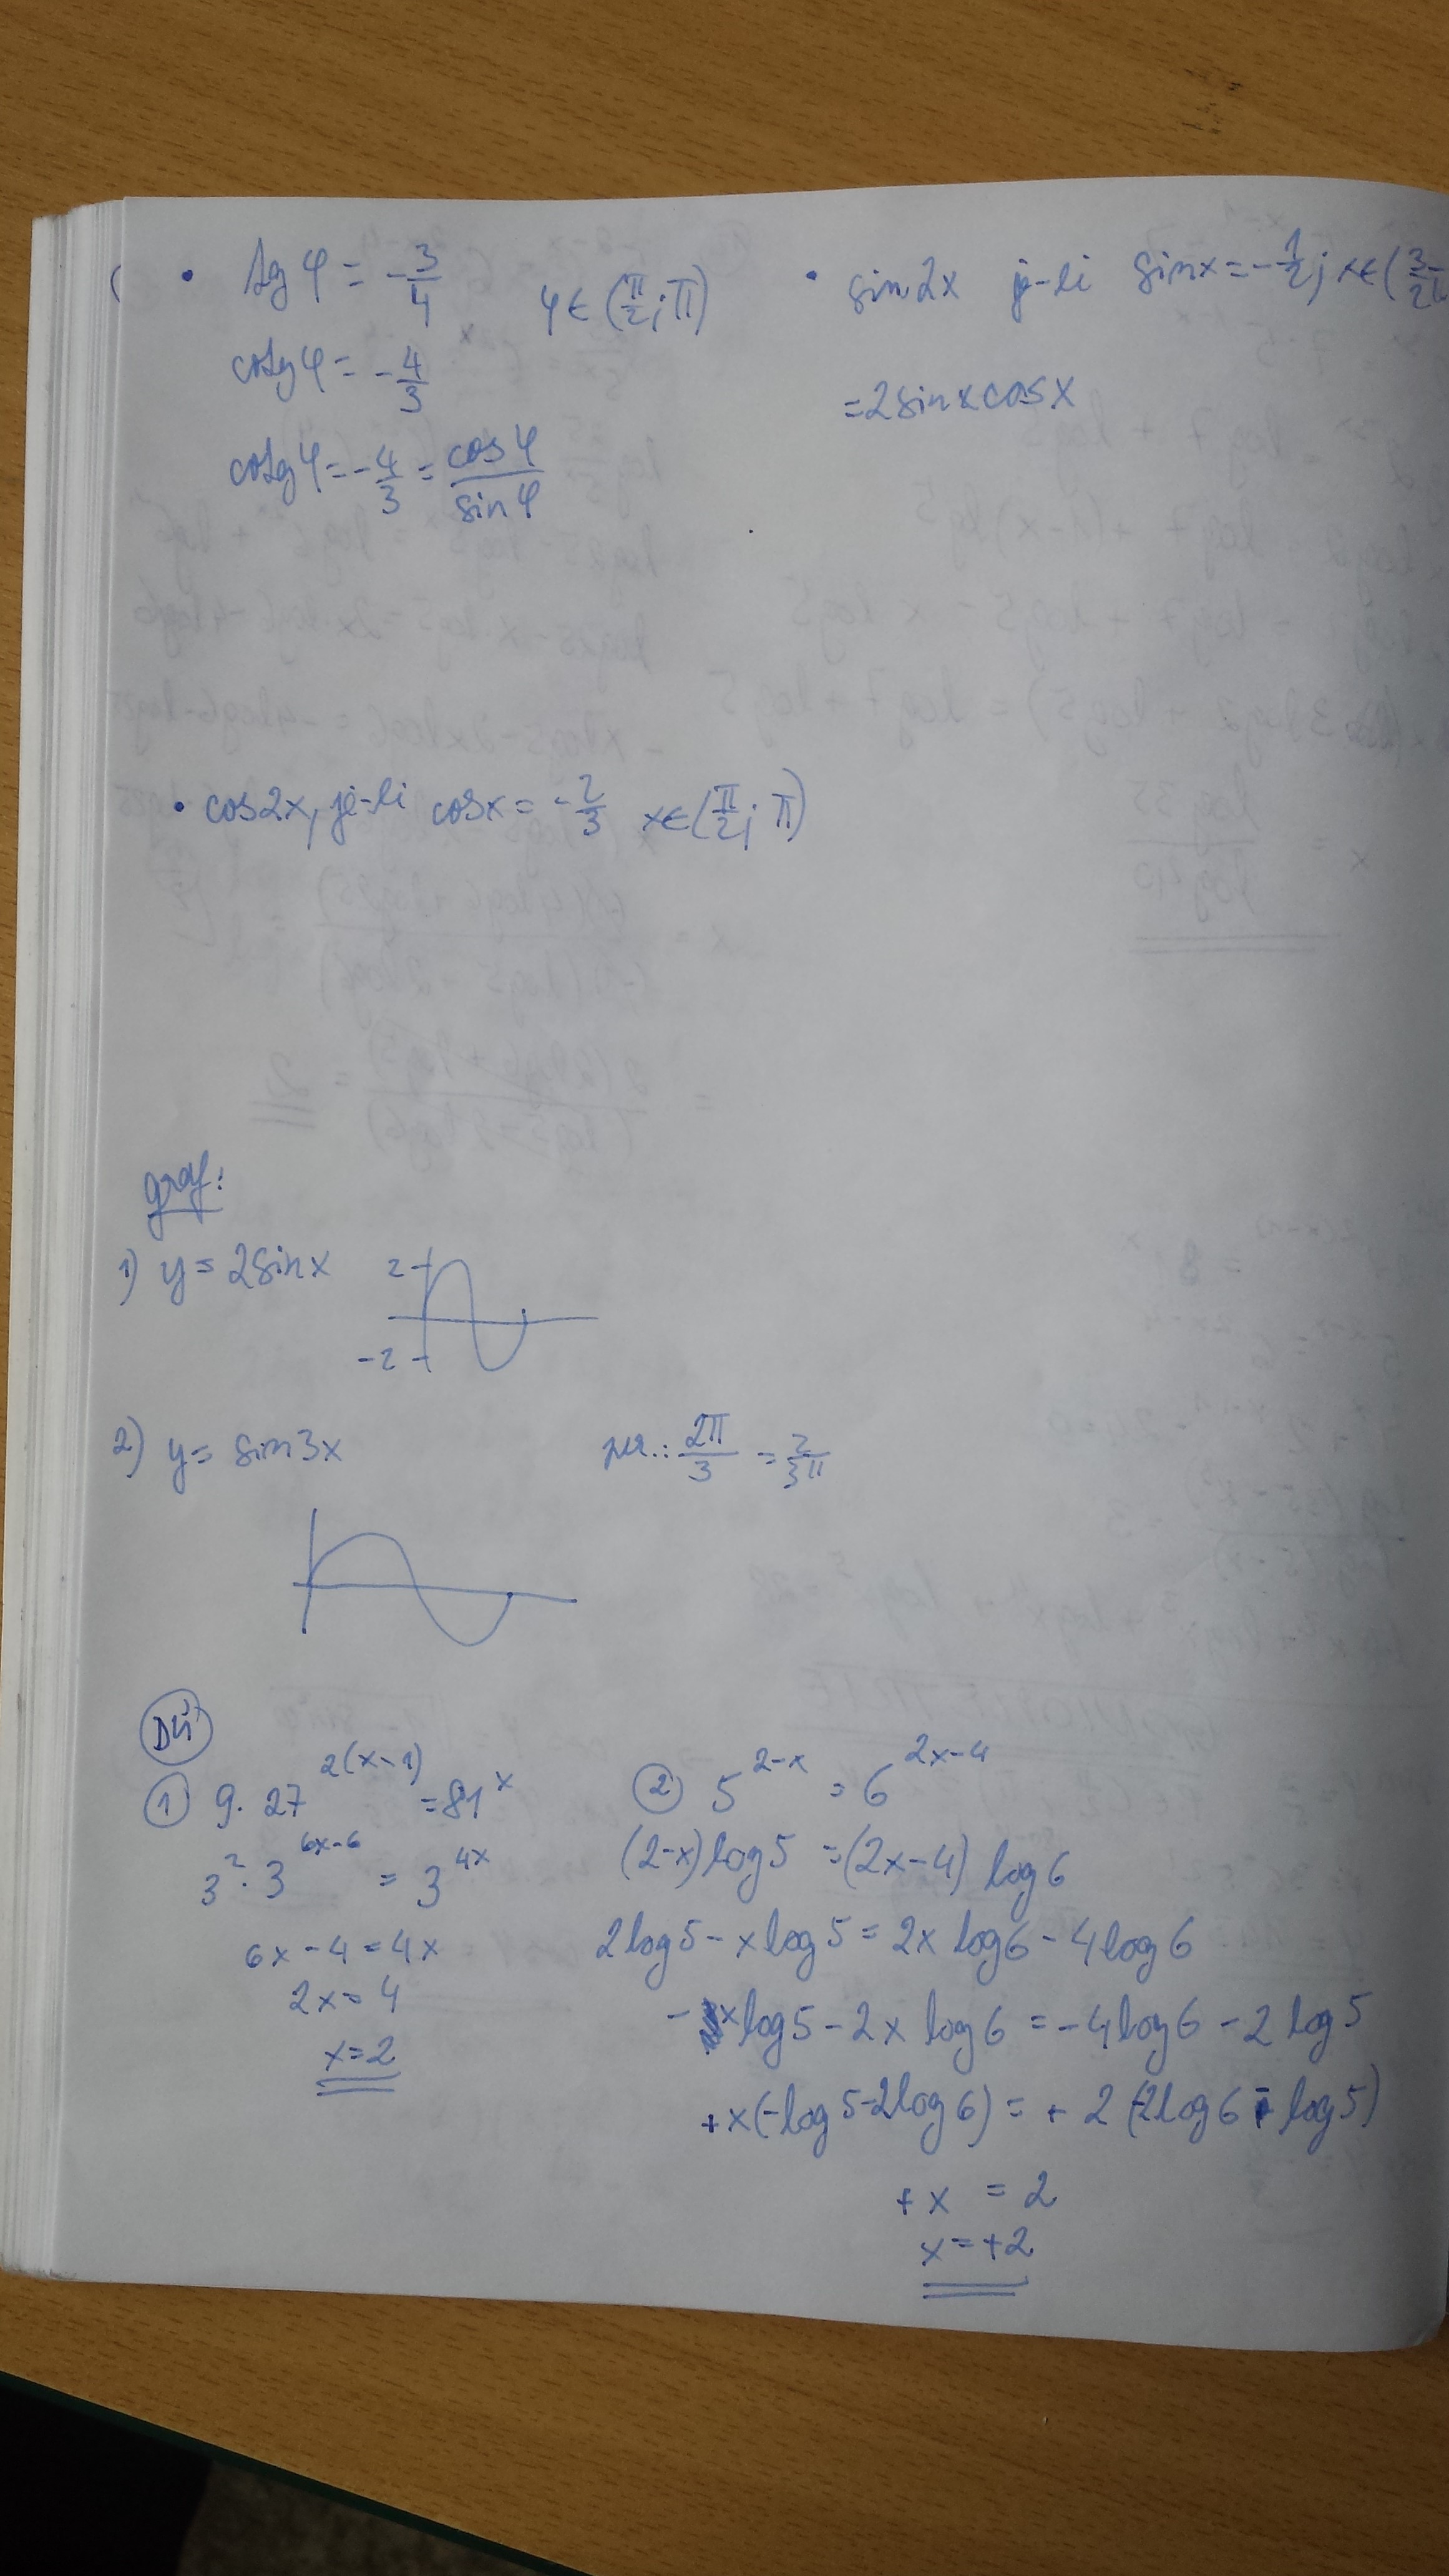 • tg φ = -3/4 φ ∈ (π/2; π)
cotg φ = -4/3
cotg φ = -4/3 = cos φ / sin φ
• sin 2x je-li sin x = -1/2; x ∈ (3/2
= 2 sin x cos x
• cos 2x, je-li cos x = -2/3 x ∈ (π/2; π)
graf:
1) y = 2 sin x
2
-2
2) y = sin 3x per.: 2π/3 = 2/3 π
DÚ
① 9 · 27^2(x-1) = 81^x
3^2 · 3^6x-6 = 3^4x
6x - 4 = 4x
2x = 4
x = 2
② 5^2-x = 6^2x-4
(2-x) log 5 = (2x-4) log 6
2 log 5 - x log 5 = 2x log 6 - 4 log 6
- x log 5 - 2x log 6 = -4 log 6 - 2 log 5
+ x (-log 5 - 2 log 6) = + 2 (-2 log 6 - log 5)
+ x = 2
x = +2